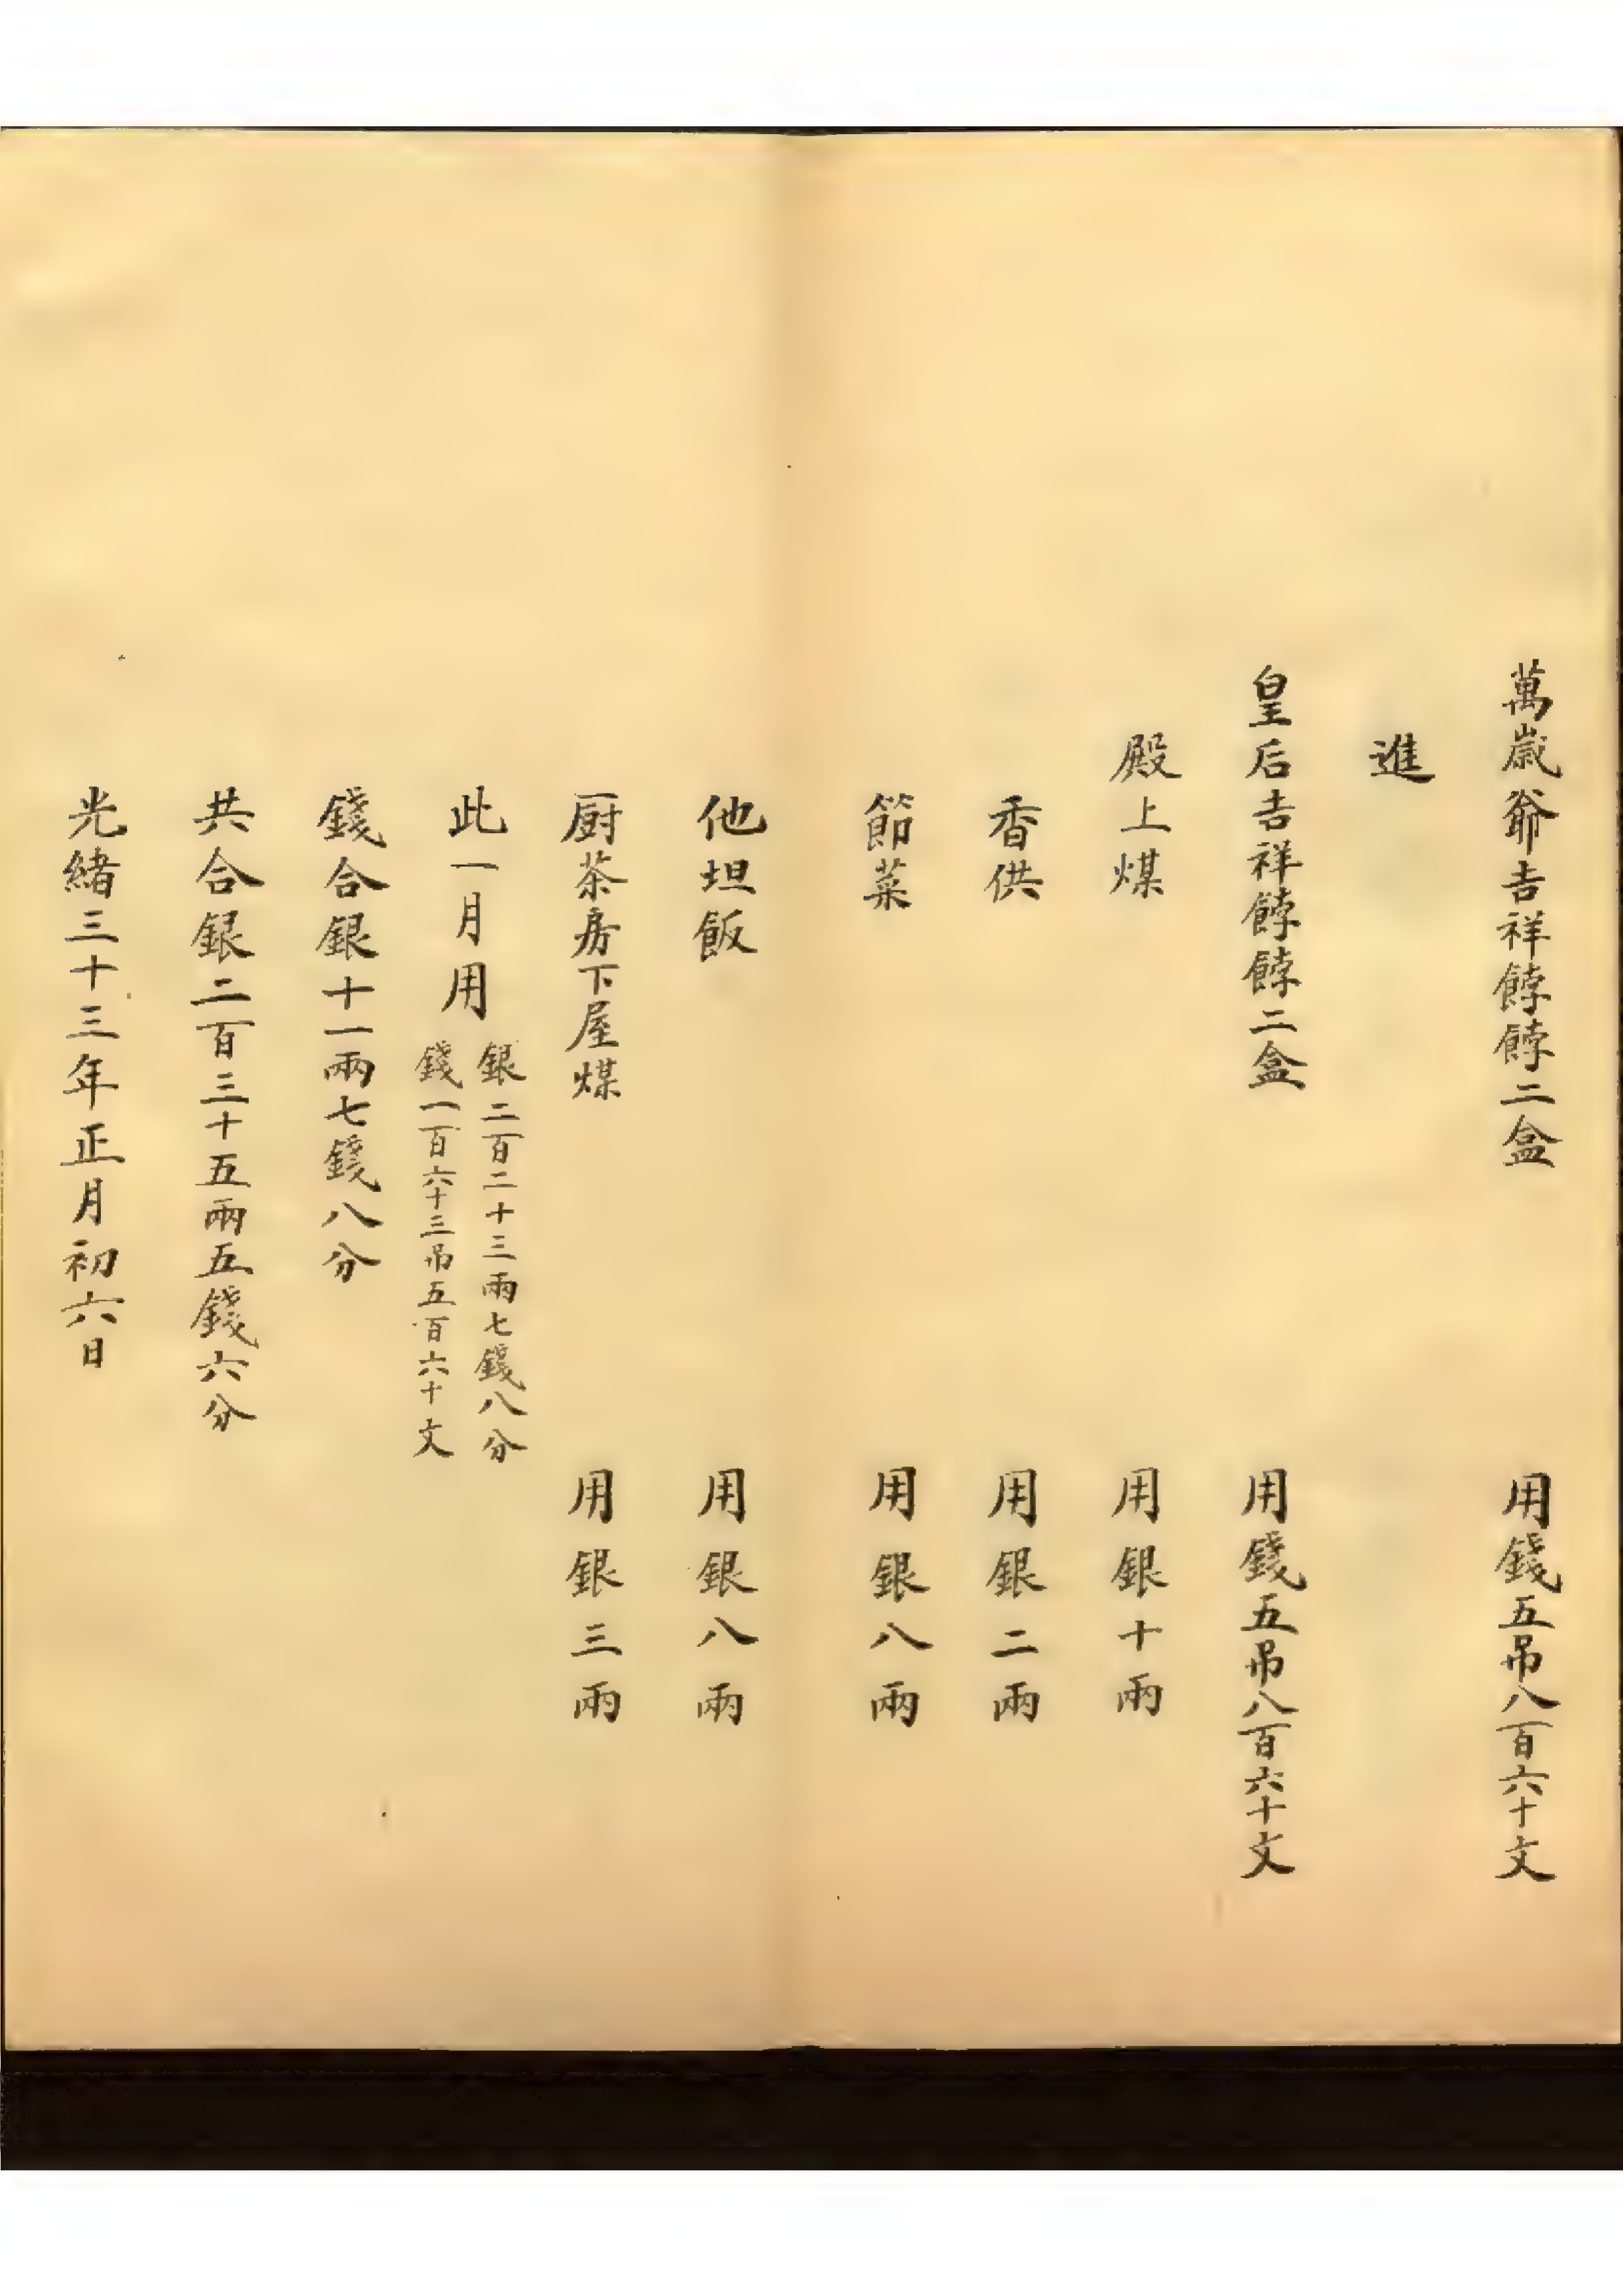 萬歲爺吉祥餑餑二盒　用錢五吊八百六十文
進
皇后吉祥餑餑二盒　用錢五吊八百六十文
殿上煤　用銀十兩
香供　用銀二兩
節菜　用銀八兩
他坦飯　用銀八兩
厨茶房下屋煤　用銀三兩
此一月用
銀二百二十三兩七錢八分
錢一百六十三吊五百六十文
錢合銀十一兩七錢八分
共合銀二百三十五兩五錢六分
光緒三十三年正月初六日